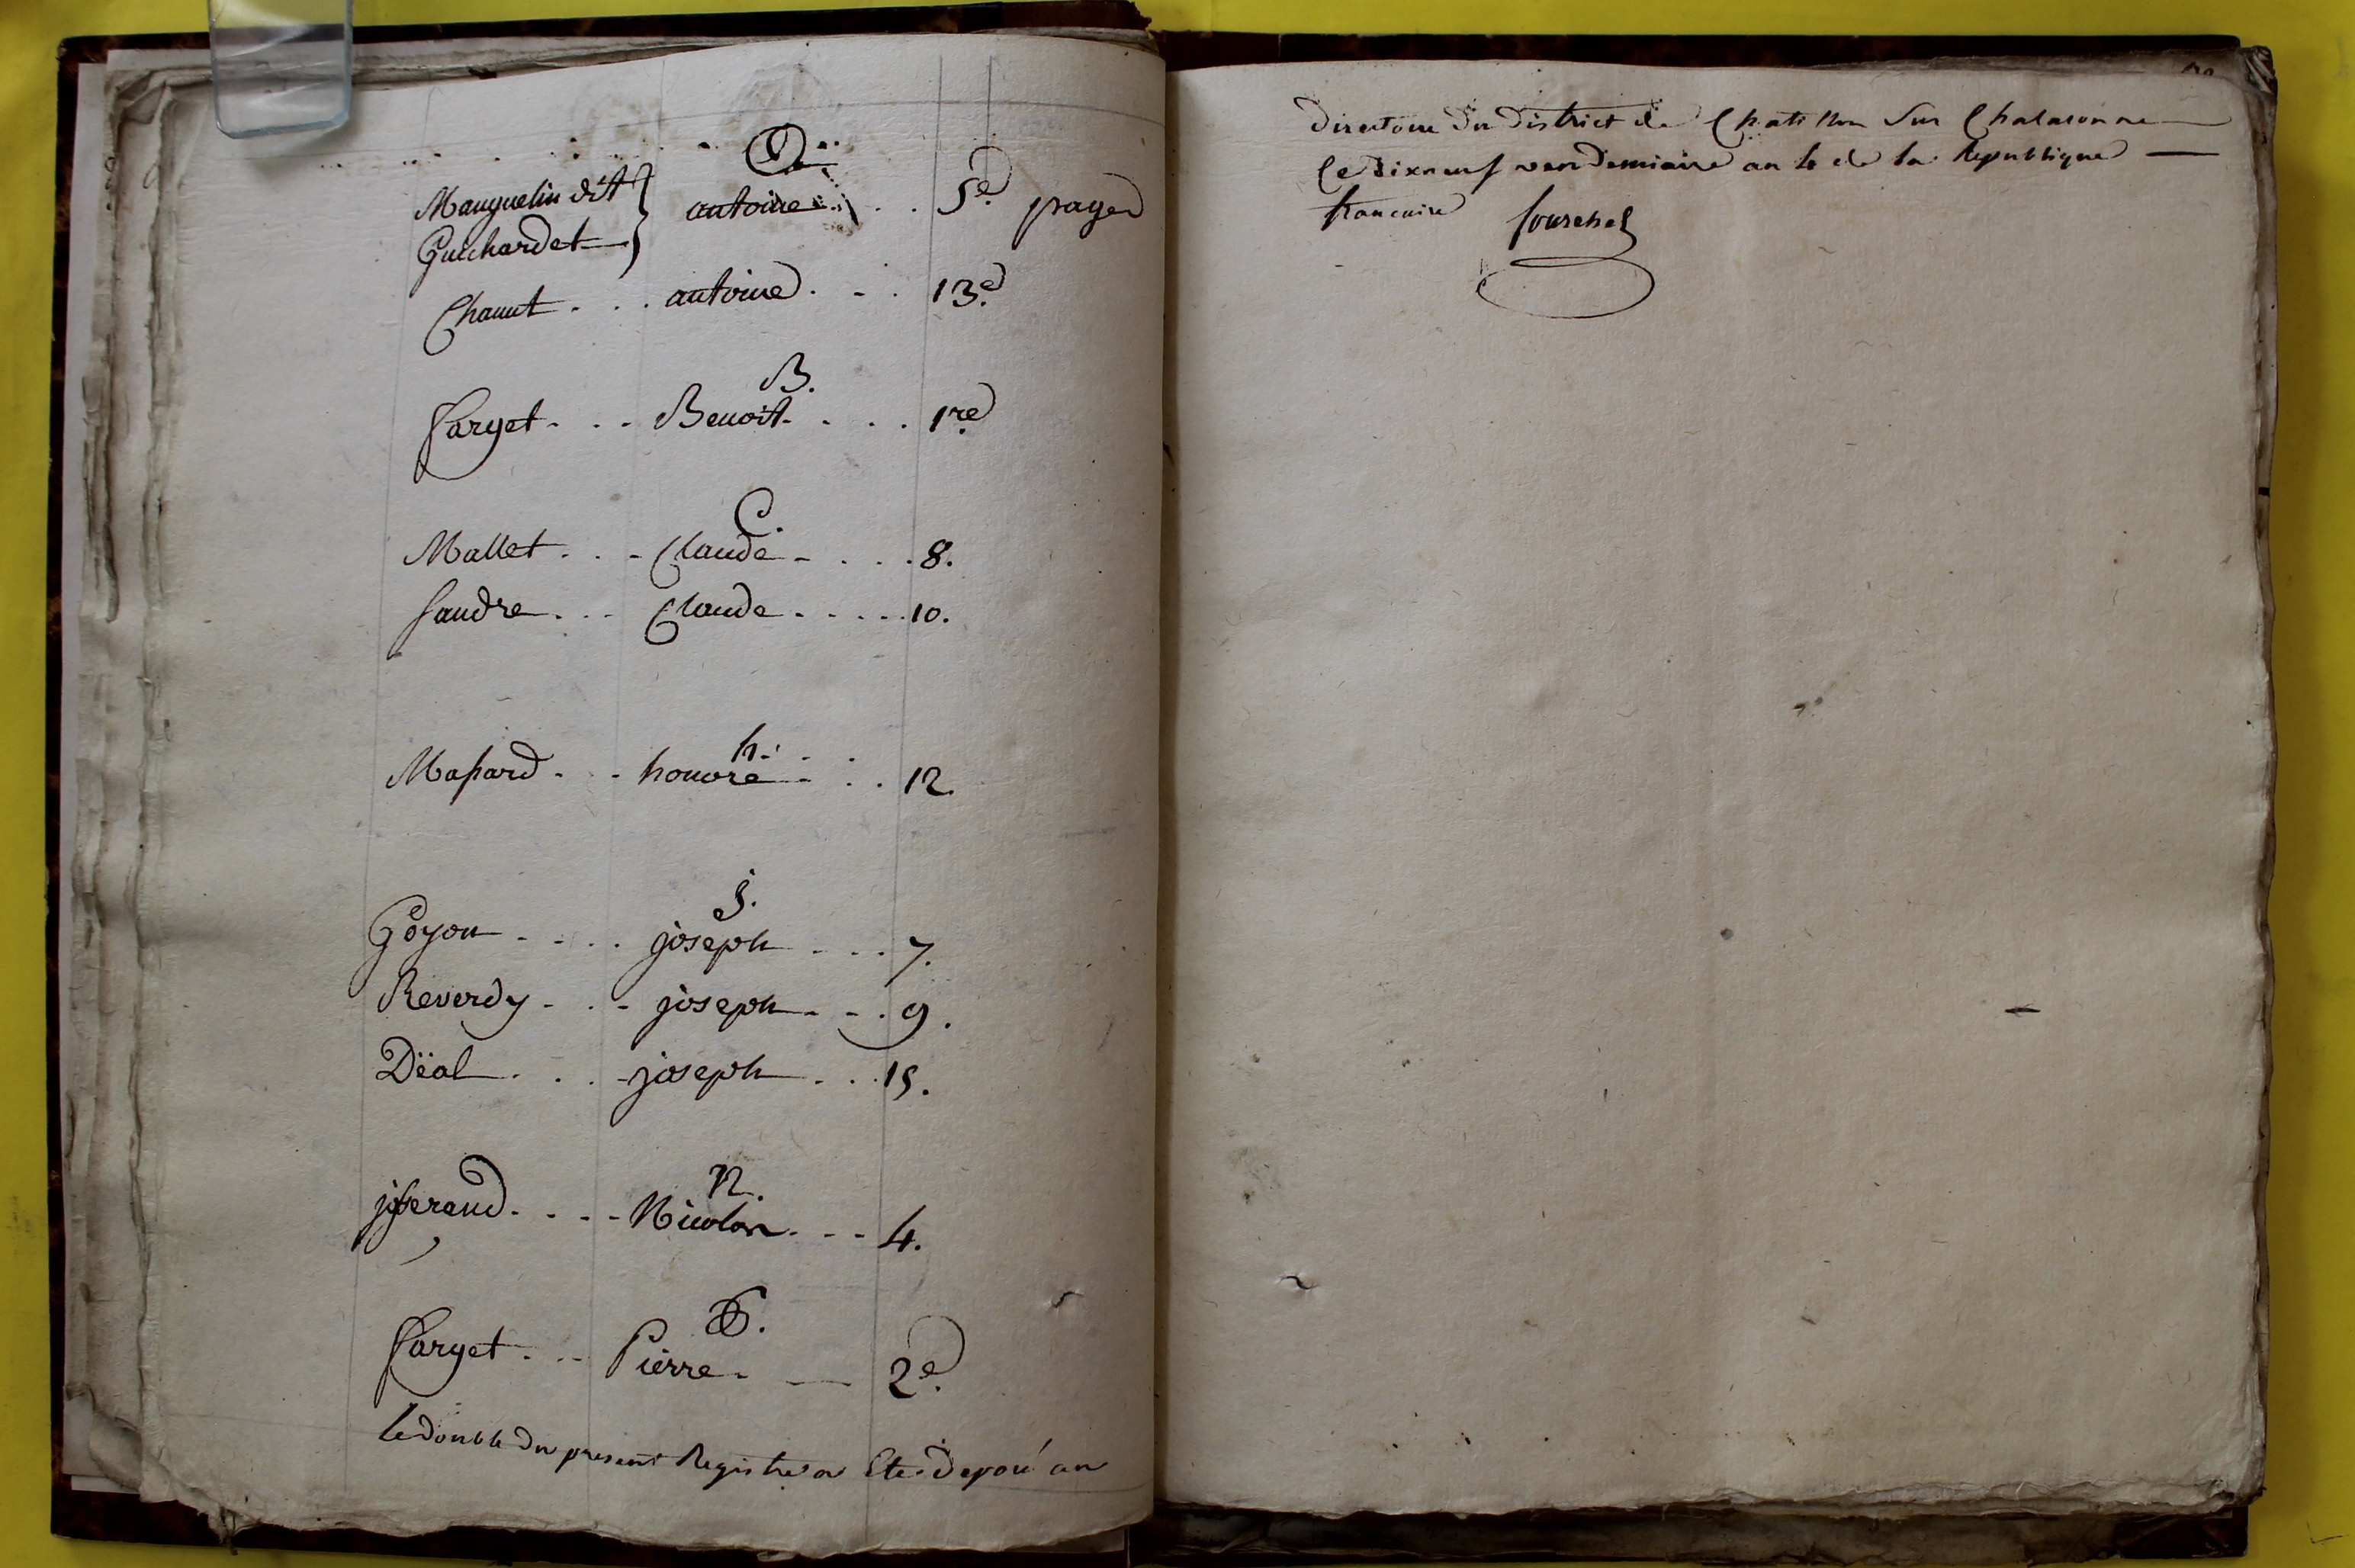 A.
Manguelin dit } antoine . . 5e. page
Guichardet
Chanut . . . antoine . . . 13e.
B.
Farget . . . Benoit . . . . 1re
C.
Mallet . . . Claude . . . . 8.
Sandre . . . Claude . . . . . 10.
h.
Massard . . . honoré . . . 12.
j.
Goyon . . . . joseph . . . 7.
Reverdy . . . joseph . . . 9.
Dëal . . . joseph . . . 15.
N.
jsserand . . . . Nicolas . . . 4.
P.
Farget . . . Pierre . . 2e.
le double du present Registre a Eté deposé au
directoire du district de Chatillon sur Chalaronne
le dixneuf vendemiaire an 4e de la Republique
francaise